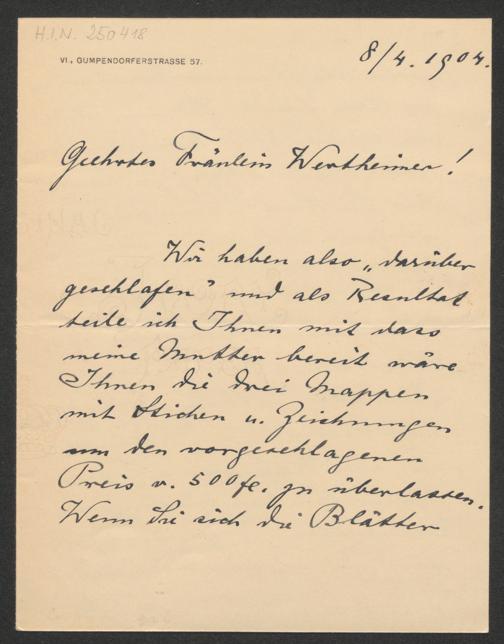 H.I.N. 250418
VI., GUMPENDORFERSTRASSE 57.
8/4. 1904.
Geehrtes Fräulein Wertheimer!
Wir haben also „darüber
geschlafen" und als Resultat
teile ich Ihnen mit dass
meine Mutter bereit wäre
Ihnen die drei Mappen
mit Stichen u. Zeichnungen
um den vorgeschlagenen
Preis v. 500 fl. zu überlassen.
Wenn Sie sich die Blätter